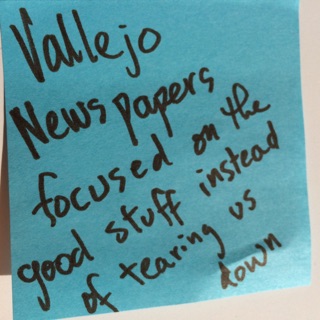 Vallejo
Newspapers
focused on the
good stuff instead
of tearing us
down